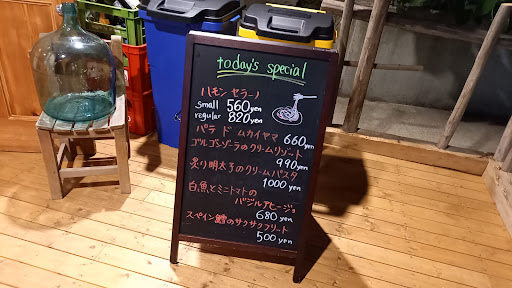 today's special
ハモン セラーノ
small 560yen
regular 820yen
パラ ド ムカイヤマ 660yen
ゴルゴンゾーラのクリームリゾート
990yen
炙り明太子のクリームパスタ
1000 yen
白魚とミニトマトの
バジルアヒージョ
680 yen
スペイン鱈のサクサクフリート
500 yen